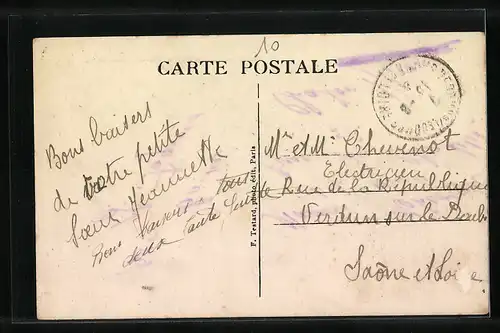 10
CARTE POSTALE
Bons baisers
de votre petite
Sœur Jeannette
Bons baisers à tous
deux
F. Testard, photo. édit., Paris
Mr et Me Chevenot
Electricien
Rue de la République
Verdun sur le Doubs
Saône et Loire